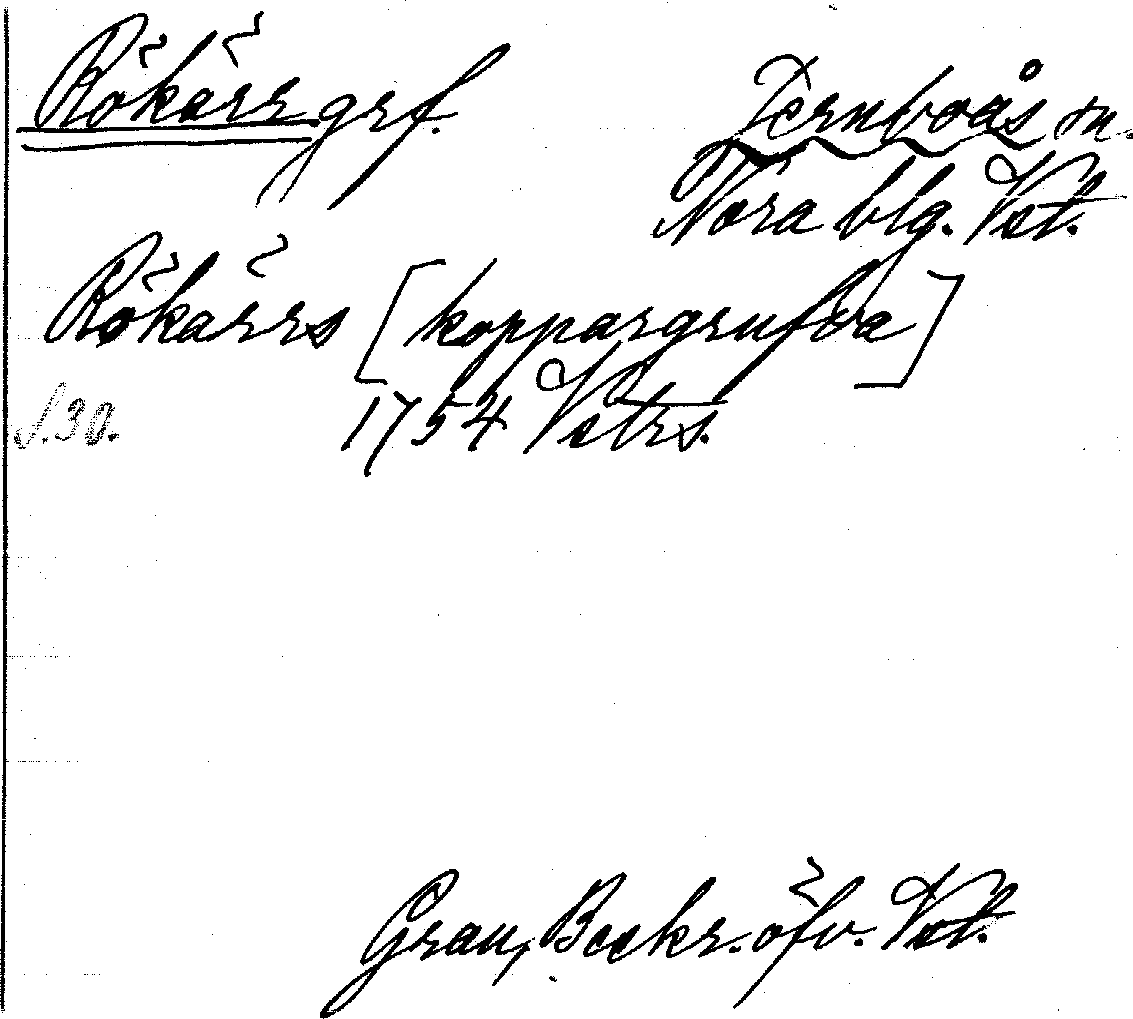 Rökärr grf.
Järnboås sn.
Nora blg. Vstm.
Rökärrs [koppargrufva]
s. 30.
1754 Vstrs.
Grau, Beskr. öfv. Vstm.